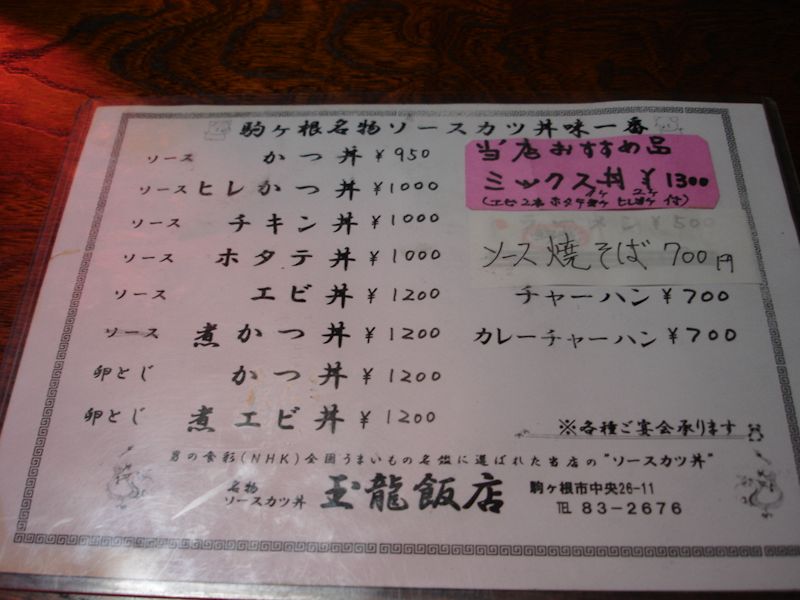 駒ヶ根名物ソースカツ丼味一番
ソース かつ丼 ¥950
ソース ヒレかつ丼 ¥1000
ソース チキン丼 ¥1000
ソース ホタテ丼 ¥1000
ソース エビ丼 ¥1200
ソース 煮かつ丼 ¥1200
卵とじ かつ丼 ¥1200
卵とじ 煮エビ丼 ¥1200
当店おすすめ品
ミックス丼 ¥1300
(エビ2本 ホタテ ヒレ 付)
ソース焼そば 700円
チャーハン ¥700
カレーチャーハン ¥700
※各種ご宴会承ります
男の食彩(NHK)全国うまいもの名鑑に選ばれた当店の"ソースカツ丼"
名物
ソースカツ丼 玉龍飯店
駒ヶ根市中央26-11
TEL 83-2676